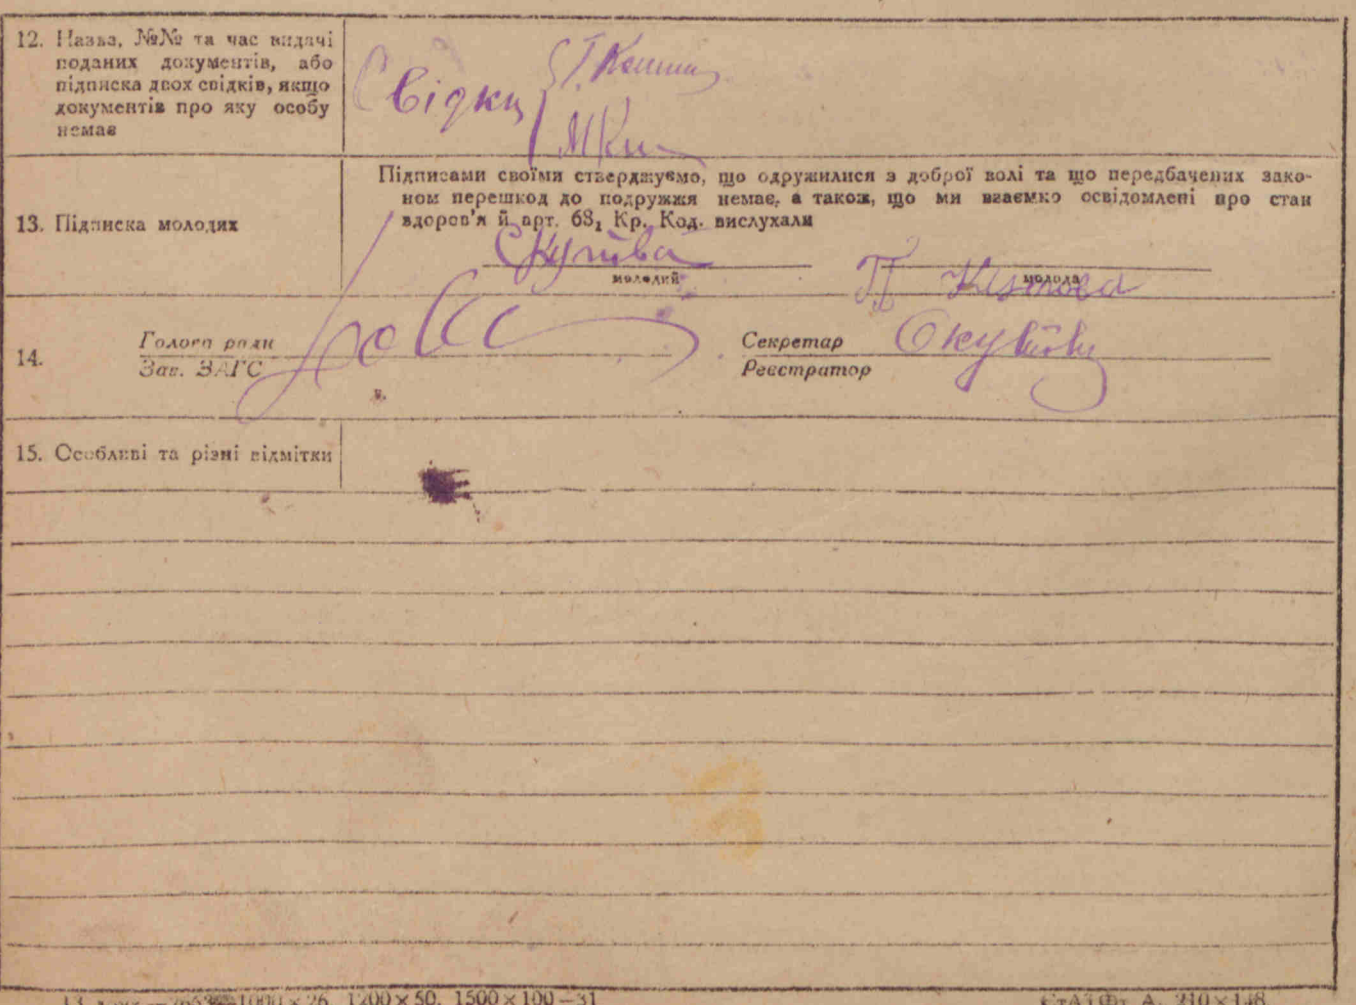 12. Назва, №№ та час видачі
поданих документів, або
підписка двох свідків, якщо
документів про яку особу
немає
Свідки
13. Підписка молодих
Підписами своїми стверджуємо, що одружилися з доброї волі та що передбачених зако-
ном перешкод до подружжя немає, а також, що ми взаємно освідомлені про стан
здоров'я й арт. 68, Кр. Код. вислухали
молодий
молода
14.
Голова ради
Зав. ЗАГС
Секретар
Реєстратор
15. Особливі та різні відмітки
1000×26, 1200×50, 1500×100—31
А. 210×148